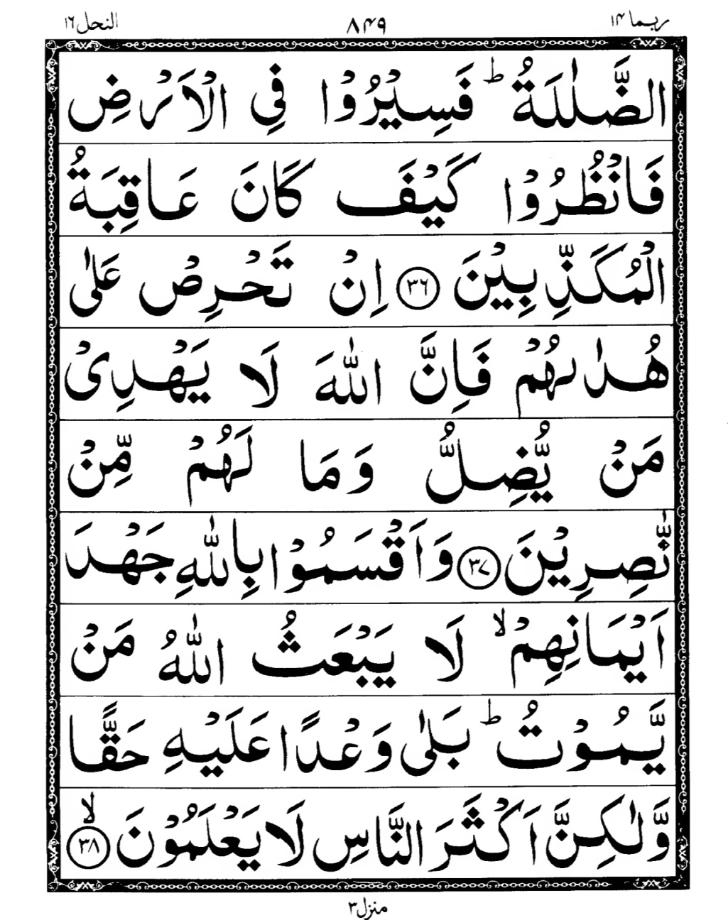 ربما ١۴ ٨۴٩ النحل ١٦
الضَّلٰلَةُ ؕ فَسِيْرُوْا فِي الْاَرْضِ
فَانْظُرُوْا كَيْفَ كَانَ عَاقِبَةُ
الْمُكَذِّبِيْنَ ﴿٣٦﴾ اِنْ تَحْرِصْ عَلٰى
هُدٰىهُمْ فَاِنَّ اللّٰهَ لَا يَهْدِيْ
مَنْ يُّضِلُّ وَمَا لَهُمْ مِّنْ
نّٰصِرِيْنَ ﴿٣٧﴾ وَاَقْسَمُوْا بِاللّٰهِ جَهْدَ
اَيْمَانِهِمْ ۙ لَا يَبْعَثُ اللّٰهُ مَنْ
يَّمُوْتُ ؕ بَلٰى وَعْدًا عَلَيْهِ حَقًّا
وَّلٰكِنَّ اَكْثَرَ النَّاسِ لَا يَعْلَمُوْنَ ۙ ﴿٣٨﴾
منزل ٣